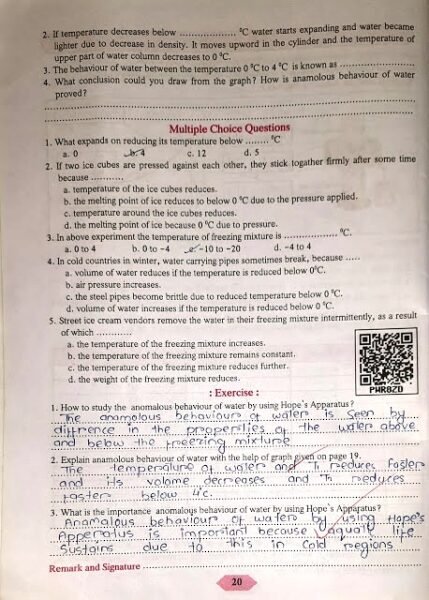 2. If temperature decreases below .................. °C water starts expanding and water became
lighter due to decrease in density. It moves upword in the cylinder and the temperature of
upper part of water column decreases to 0 °C.
3. The behaviour of water between the temperature 0 °C to 4 °C is known as ..................
4. What conclusion could you draw from the graph? How is anamolous behaviour of water
proved?
Multiple Choice Questions
1. What expands on reducing its temperature below ........ °C
a. 0 b. 4 c. 12 d. 5
2. If two ice cubes are pressed against each other, they stick togather firmly after some time
because ...........
a. temperature of the ice cubes reduces.
b. the melting point of ice reduces to below 0 °C due to the pressure applied.
c. temperature around the ice cubes reduces.
d. the melting point of ice because 0 °C due to pressure.
3. In above experiment the temperature of freezing mixture is .................. °C.
a. 0 to 4 b. 0 to -4 c. -10 to -20 d. -4 to 4
4. In cold countries in winter, water carrying pipes sometimes break, because .....
a. volume of water reduces if the temperature is reduced below 0°C.
b. air pressure increases.
c. the steel pipes become brittle due to reduced temperature below 0 °C.
d. volume of water increases if the temperature is reduced below 0 °C.
5. Street ice cream vendors remove the water in their freezing mixture intermittently, as a result
of which ............
a. the temperature of the freezing mixture increases.
b. the temperature of the freezing mixture remains constant.
c. the temperature of the freezing mixture reduces further.
d. the weight of the freezing mixture reduces.
PHR8ZD
: Exercise :
1. How to study the anomalous behaviour of water by using Hope's Apparatus?
The anamolous behaviour of water is seen by
diffrence in the properties of the water above
and below the freezing mixture
2. Explain anamolous behaviour of water with the help of graph given on page 19.
The temperature of water and T1 reduces faster
and its volome decreases and T2 reduces
faster below 4°c.
3. What is the importance anomalous behaviour of water by using Hope's Apparatus?
Anamalous behaviour of waters by using Hope's
Apperatus is important because aquatic life
Sustains due to this in cold regions
Remark and Signature
20